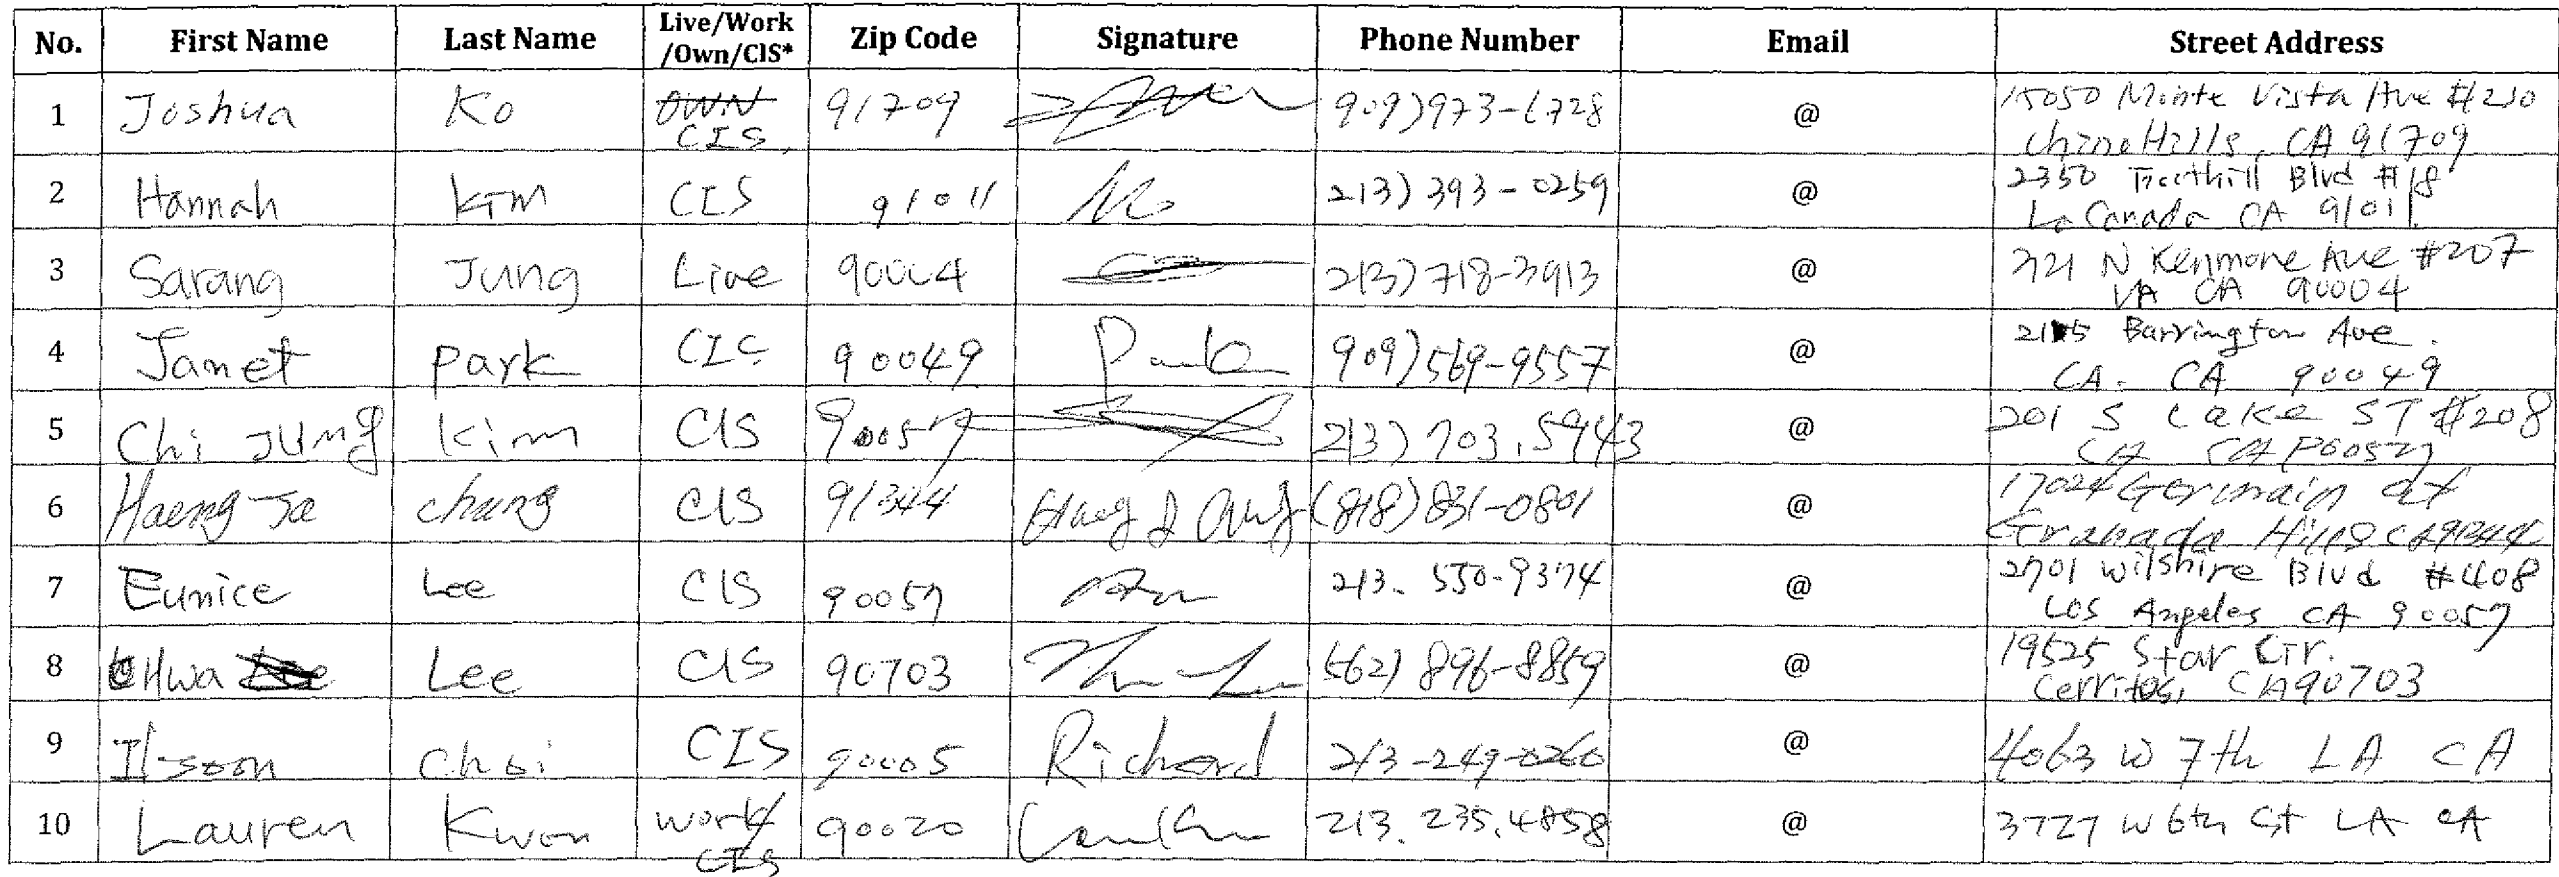 No. First Name Last Name Live/Work /Own/CIS* Zip Code Signature Phone Number Email Street Address
1 Joshua Ko OWN CIS, 91709 909)973-6728 @ 15050 Monte Vista Ave #210
Chino Hills, CA 91709
2 Hannah Kim CIS 91011 213)393-0259 @ 2350 Foothill Blvd #18
La Canada CA 91011
3 Sarang Jung Live 90004 213)718-3913 @ N Kenmore Ave #207
CA 90004
4 Janet Park CIS 90049 Park 909)569-9557 @ Barrington Ave.
CA. CA 90049
5 Chi Jung Kim CIS 90057 213)703.5943 @ 201 S Lake ST #208
CA 90057
6 Haeng Ja Chung CIS 91344 (818)831-0801 @ 17024 Germain st
Granada Hills CA 91344
7 Eunice Lee CIS 90057 213. 550-9374 @ 2701 Wilshire Blvd #408
Los Angeles CA 90057
8 Hwa Lee Lee CIS 90703 562) 896-8859 @ 19525 Star Cir.
Cerritos, CA 90703
9 Il-soon Choi CIS 90005 Richard 213-249-0260 @ 4063 W 7th LA CA
10 Lauren Kwon work/ CIS 90020 213.235.4858 @ 3727 W 6th St LA CA